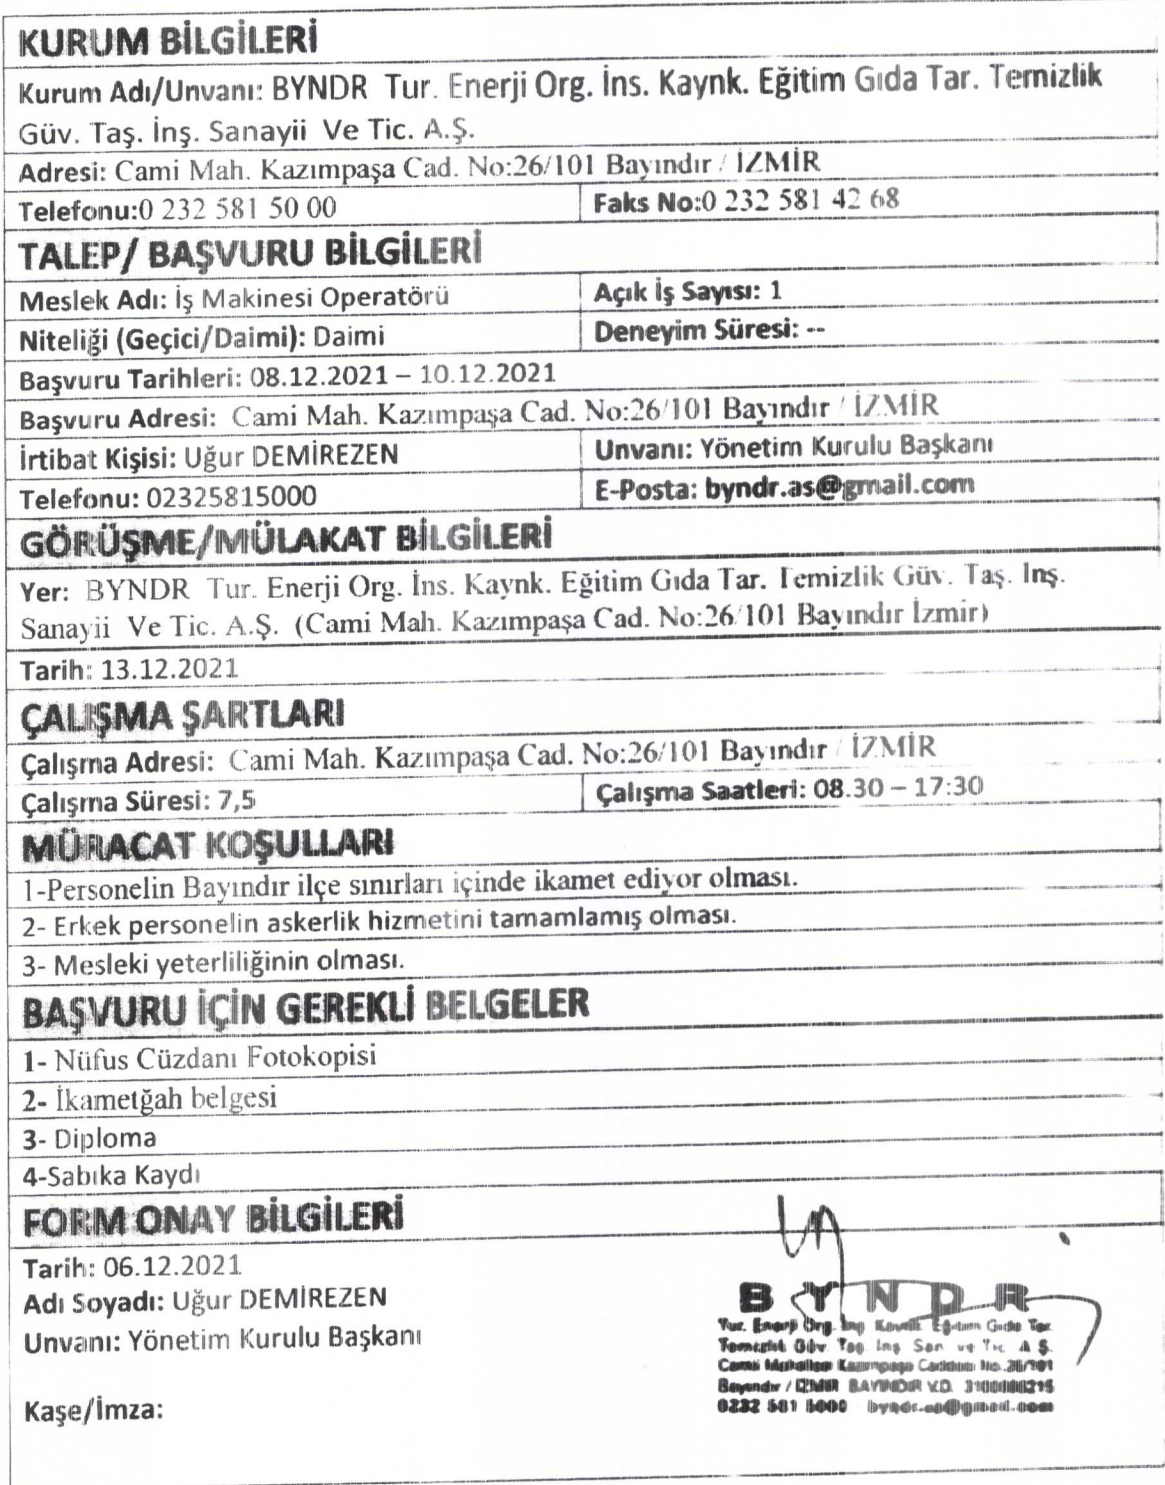 KURUM BİLGİLERİ
Kurum Adı/Unvanı: BYNDR Tur. Enerji Org. İns. Kaynk. Eğitim Gıda Tar. Temizlik
Güv. Taş. İnş. Sanayii Ve Tic. A.Ş.
Adresi: Cami Mah. Kazımpaşa Cad. No:26/101 Bayındır / İZMİR
Telefonu:0 232 581 50 00
Faks No:0 232 581 42 68
TALEP/ BAŞVURU BİLGİLERİ
Meslek Adı: İş Makinesi Operatörü
Açık İş Sayısı: 1
Niteliği (Geçici/Daimi): Daimi
Deneyim Süresi: --
Başvuru Tarihleri: 08.12.2021 – 10.12.2021
Başvuru Adresi: Cami Mah. Kazımpaşa Cad. No:26/101 Bayındır / İZMİR
İrtibat Kişisi: Uğur DEMİREZEN
Unvanı: Yönetim Kurulu Başkanı
Telefonu: 02325815000
E-Posta: byndr.as@gmail.com
GÖRÜŞME/MÜLAKAT BİLGİLERİ
Yer: BYNDR Tur. Enerji Org. İns. Kaynk. Eğitim Gıda Tar. Temizlik Güv. Taş. Inş.
Sanayii Ve Tic. A.Ş. (Cami Mah. Kazımpaşa Cad. No:26/101 Bayındır İzmir)
Tarih: 13.12.2021
ÇALIŞMA ŞARTLARI
Çalışma Adresi: Cami Mah. Kazımpaşa Cad. No:26/101 Bayındır / İZMİR
Çalışma Süresi: 7,5
Çalışma Saatleri: 08.30 – 17:30
MÜRACAT KOŞULLARI
1-Personelin Bayındır ilçe sınırları içinde ikamet ediyor olması.
2- Erkek personelin askerlik hizmetini tamamlamış olması.
3- Mesleki yeterliliğinin olması.
BAŞVURU İÇİN GEREKLİ BELGELER
1- Nüfus Cüzdanı Fotokopisi
2- İkametğah belgesi
3- Diploma
4-Sabıka Kaydı
FORM ONAY BİLGİLERİ
Tarih: 06.12.2021
Adı Soyadı: Uğur DEMİREZEN
Unvanı: Yönetim Kurulu Başkanı
Kaşe/İmza:
BYNDR
Tur. Enerji Org. İnş. Kaynk. Eğitim Gıda Tar.
Temizlik Güv. Taş. İnş. San. ve Tic. A.Ş.
Cami Mahallesi Kazımpaşa Caddesi No.26/101
Bayındır / İZMİR BAYINDIR V.D.
0232 581 5000 byndr.as@gmail.com